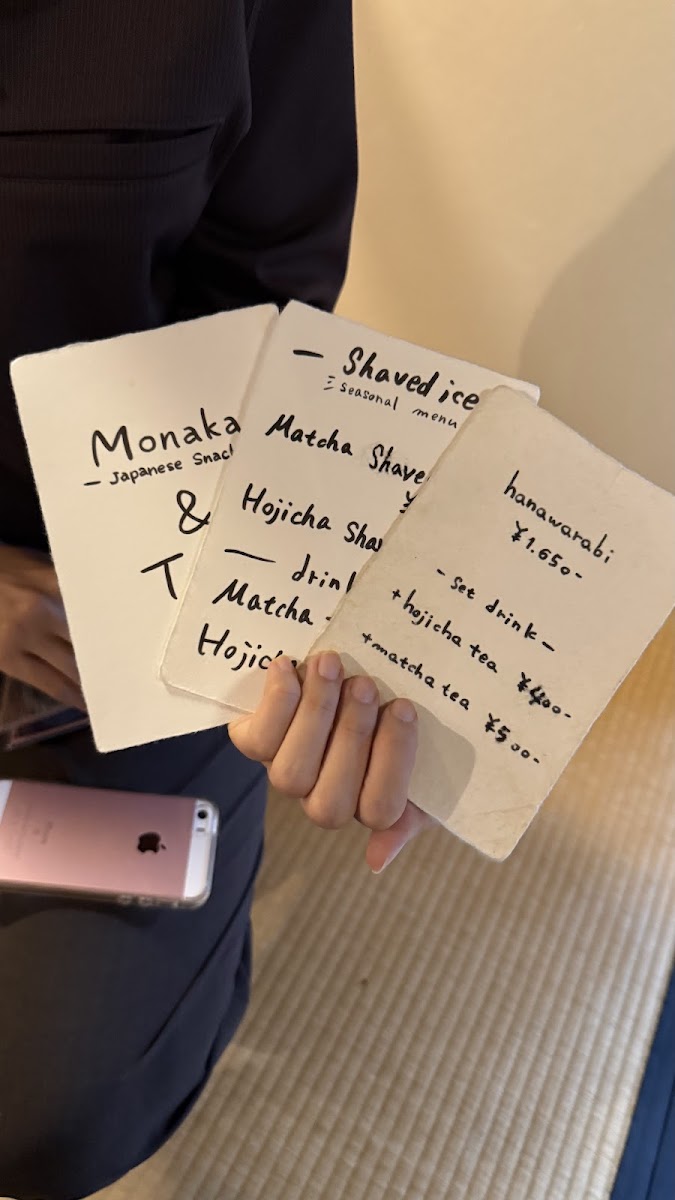 Monaka
- Japanese Snac
&
T
- Shaved ice
seasonal menu
Matcha Shave
¥
Hojicha Sha
— drin
Matcha -
Hojic
hanawarabi
¥1.650-
- set drink -
+hojicha tea ¥400-
+matcha tea ¥500-